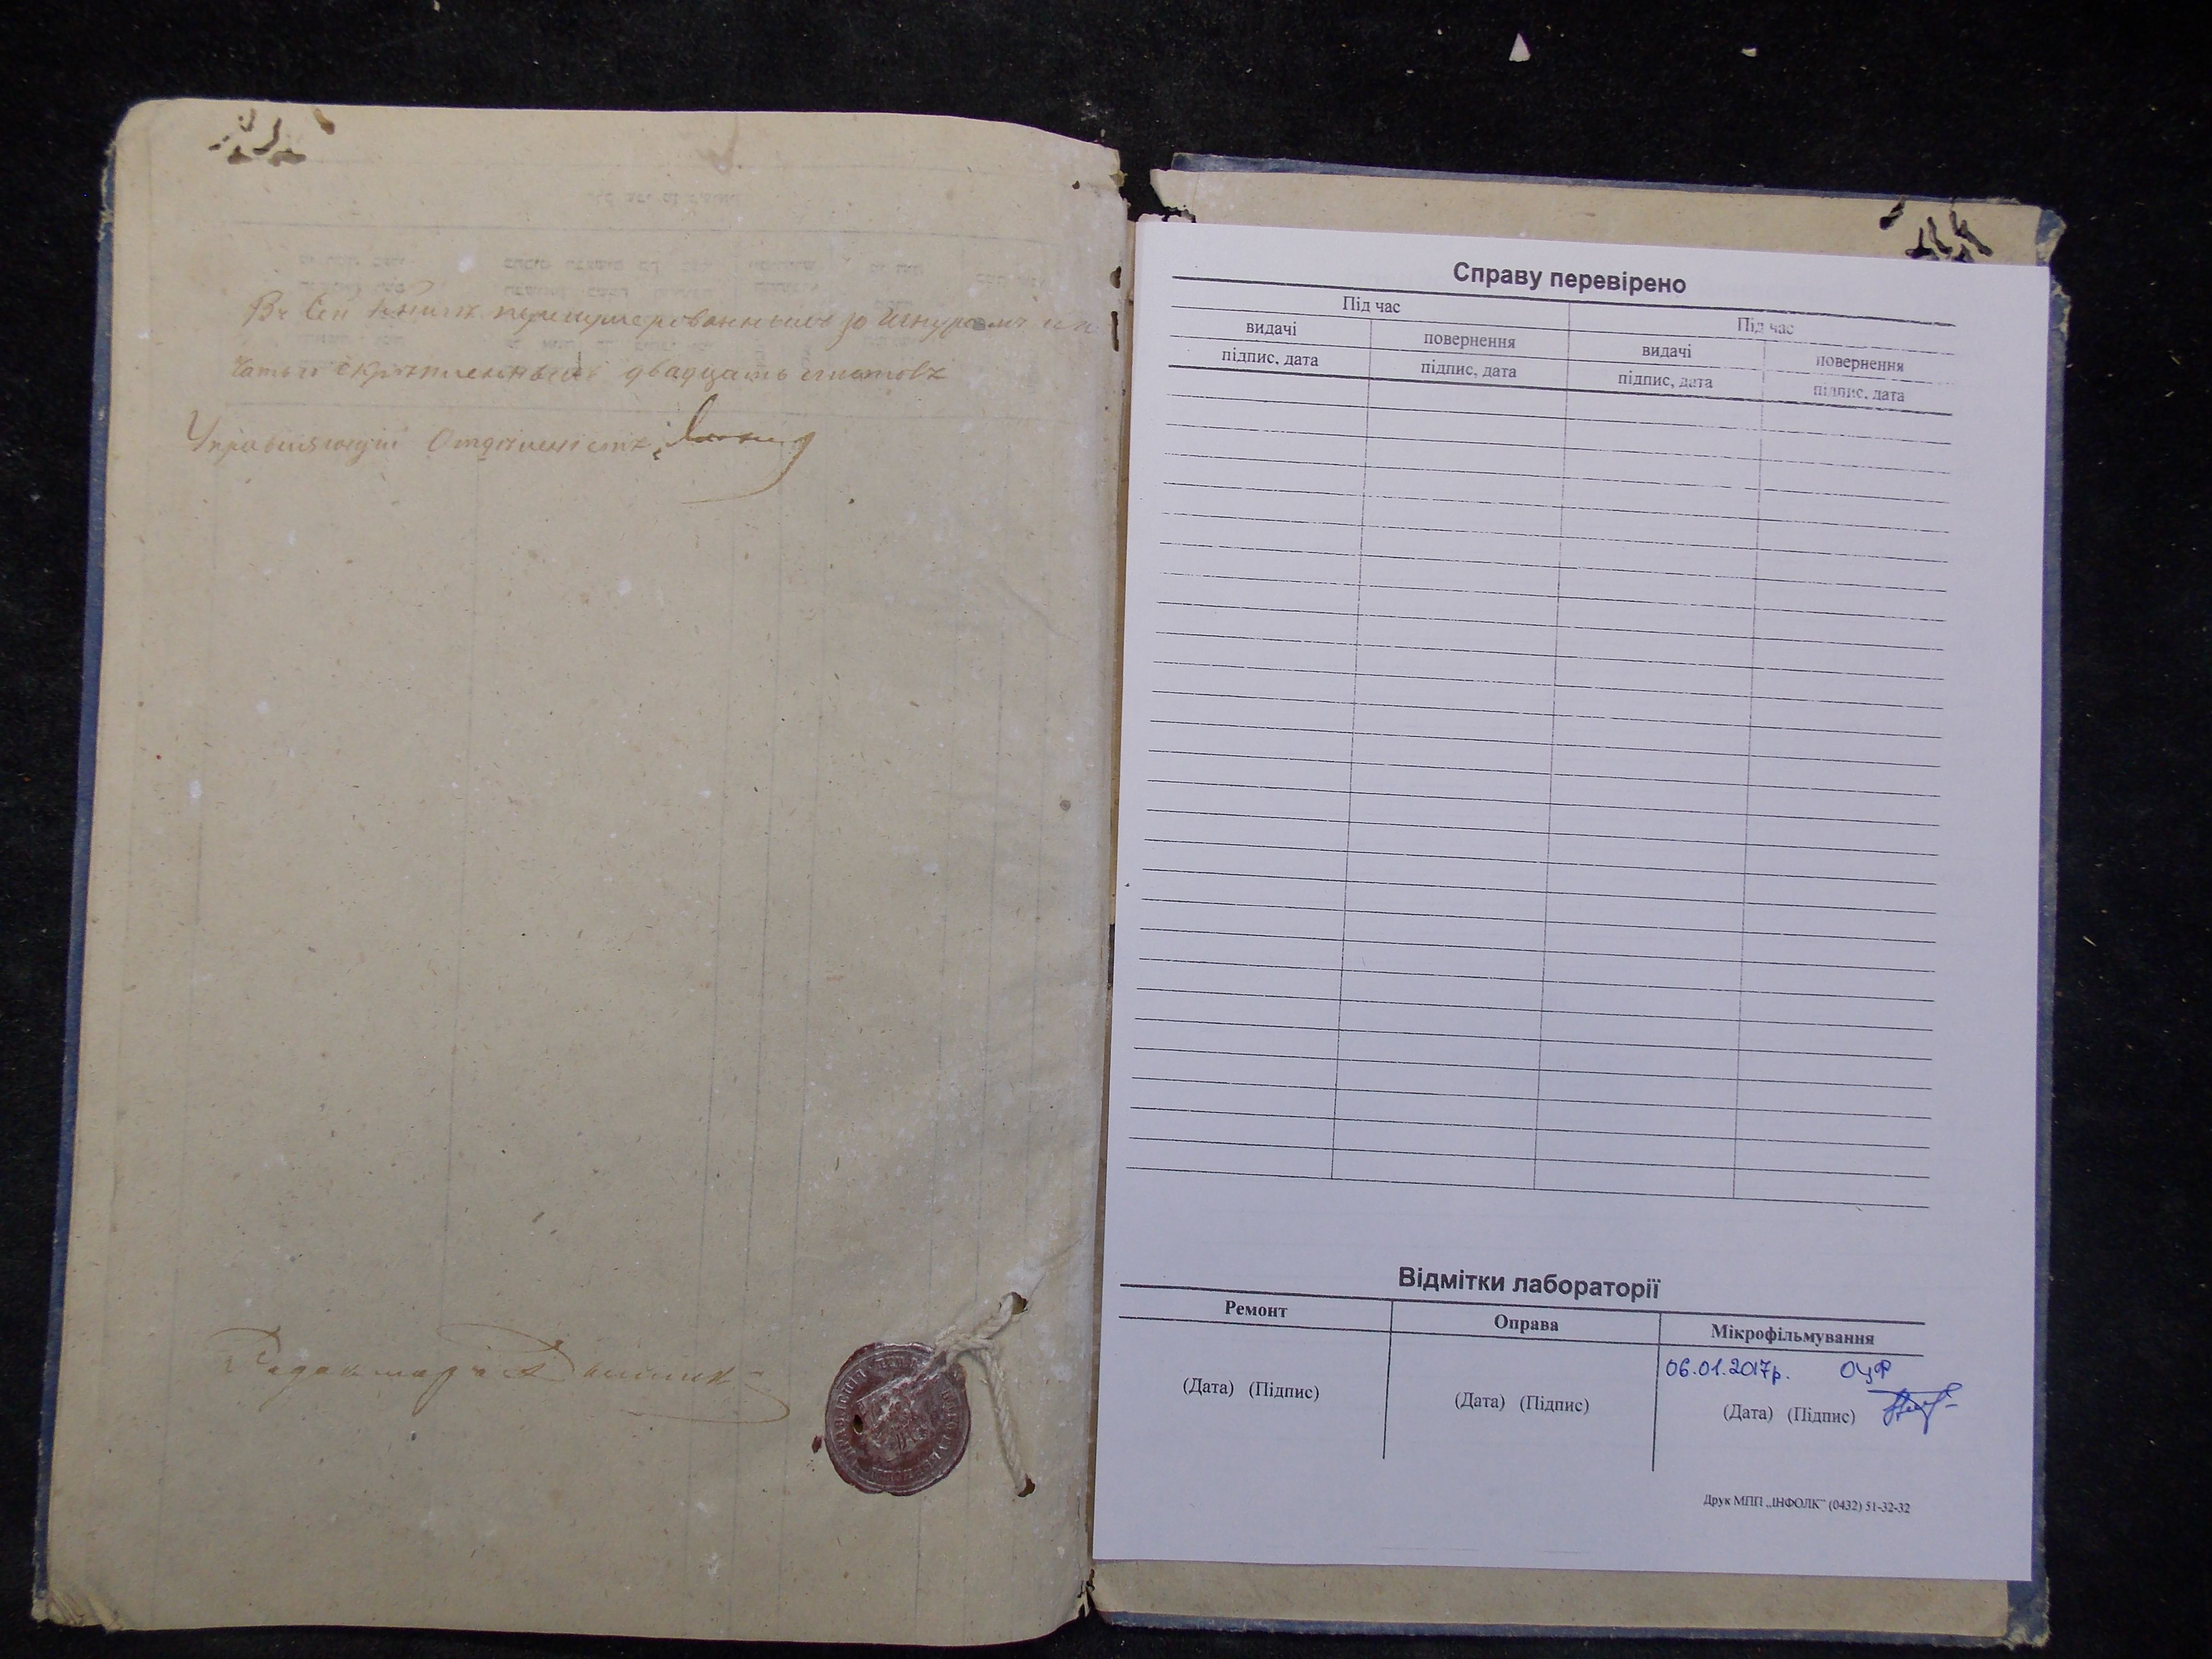 Въ сей книгѣ пронумерованныхъ зо шнуромъ и пе
чатью скрѣпленныхъ двадцать листовъ
Управляющій Отдѣленіемъ
Редакторъ
Справу перевірено
Під час
Під час
видачі повернення видачі повернення
підпис, дата підпис, дата підпис, дата підпис, дата
Відмітки лабораторії
Ремонт Оправа Мікрофільмування
06.01.2017р. ОЦФ
(Дата) (Підпис) (Дата) (Підпис) (Дата) (Підпис)
Друк МПП „ІНФОЛК" (0432) 51-32-32